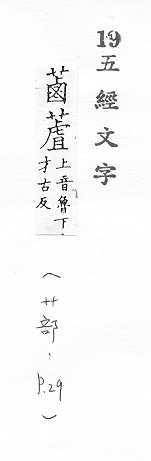 19 五經文字
蓾蔖
上音魯下
才古反
(艹部, p.29)